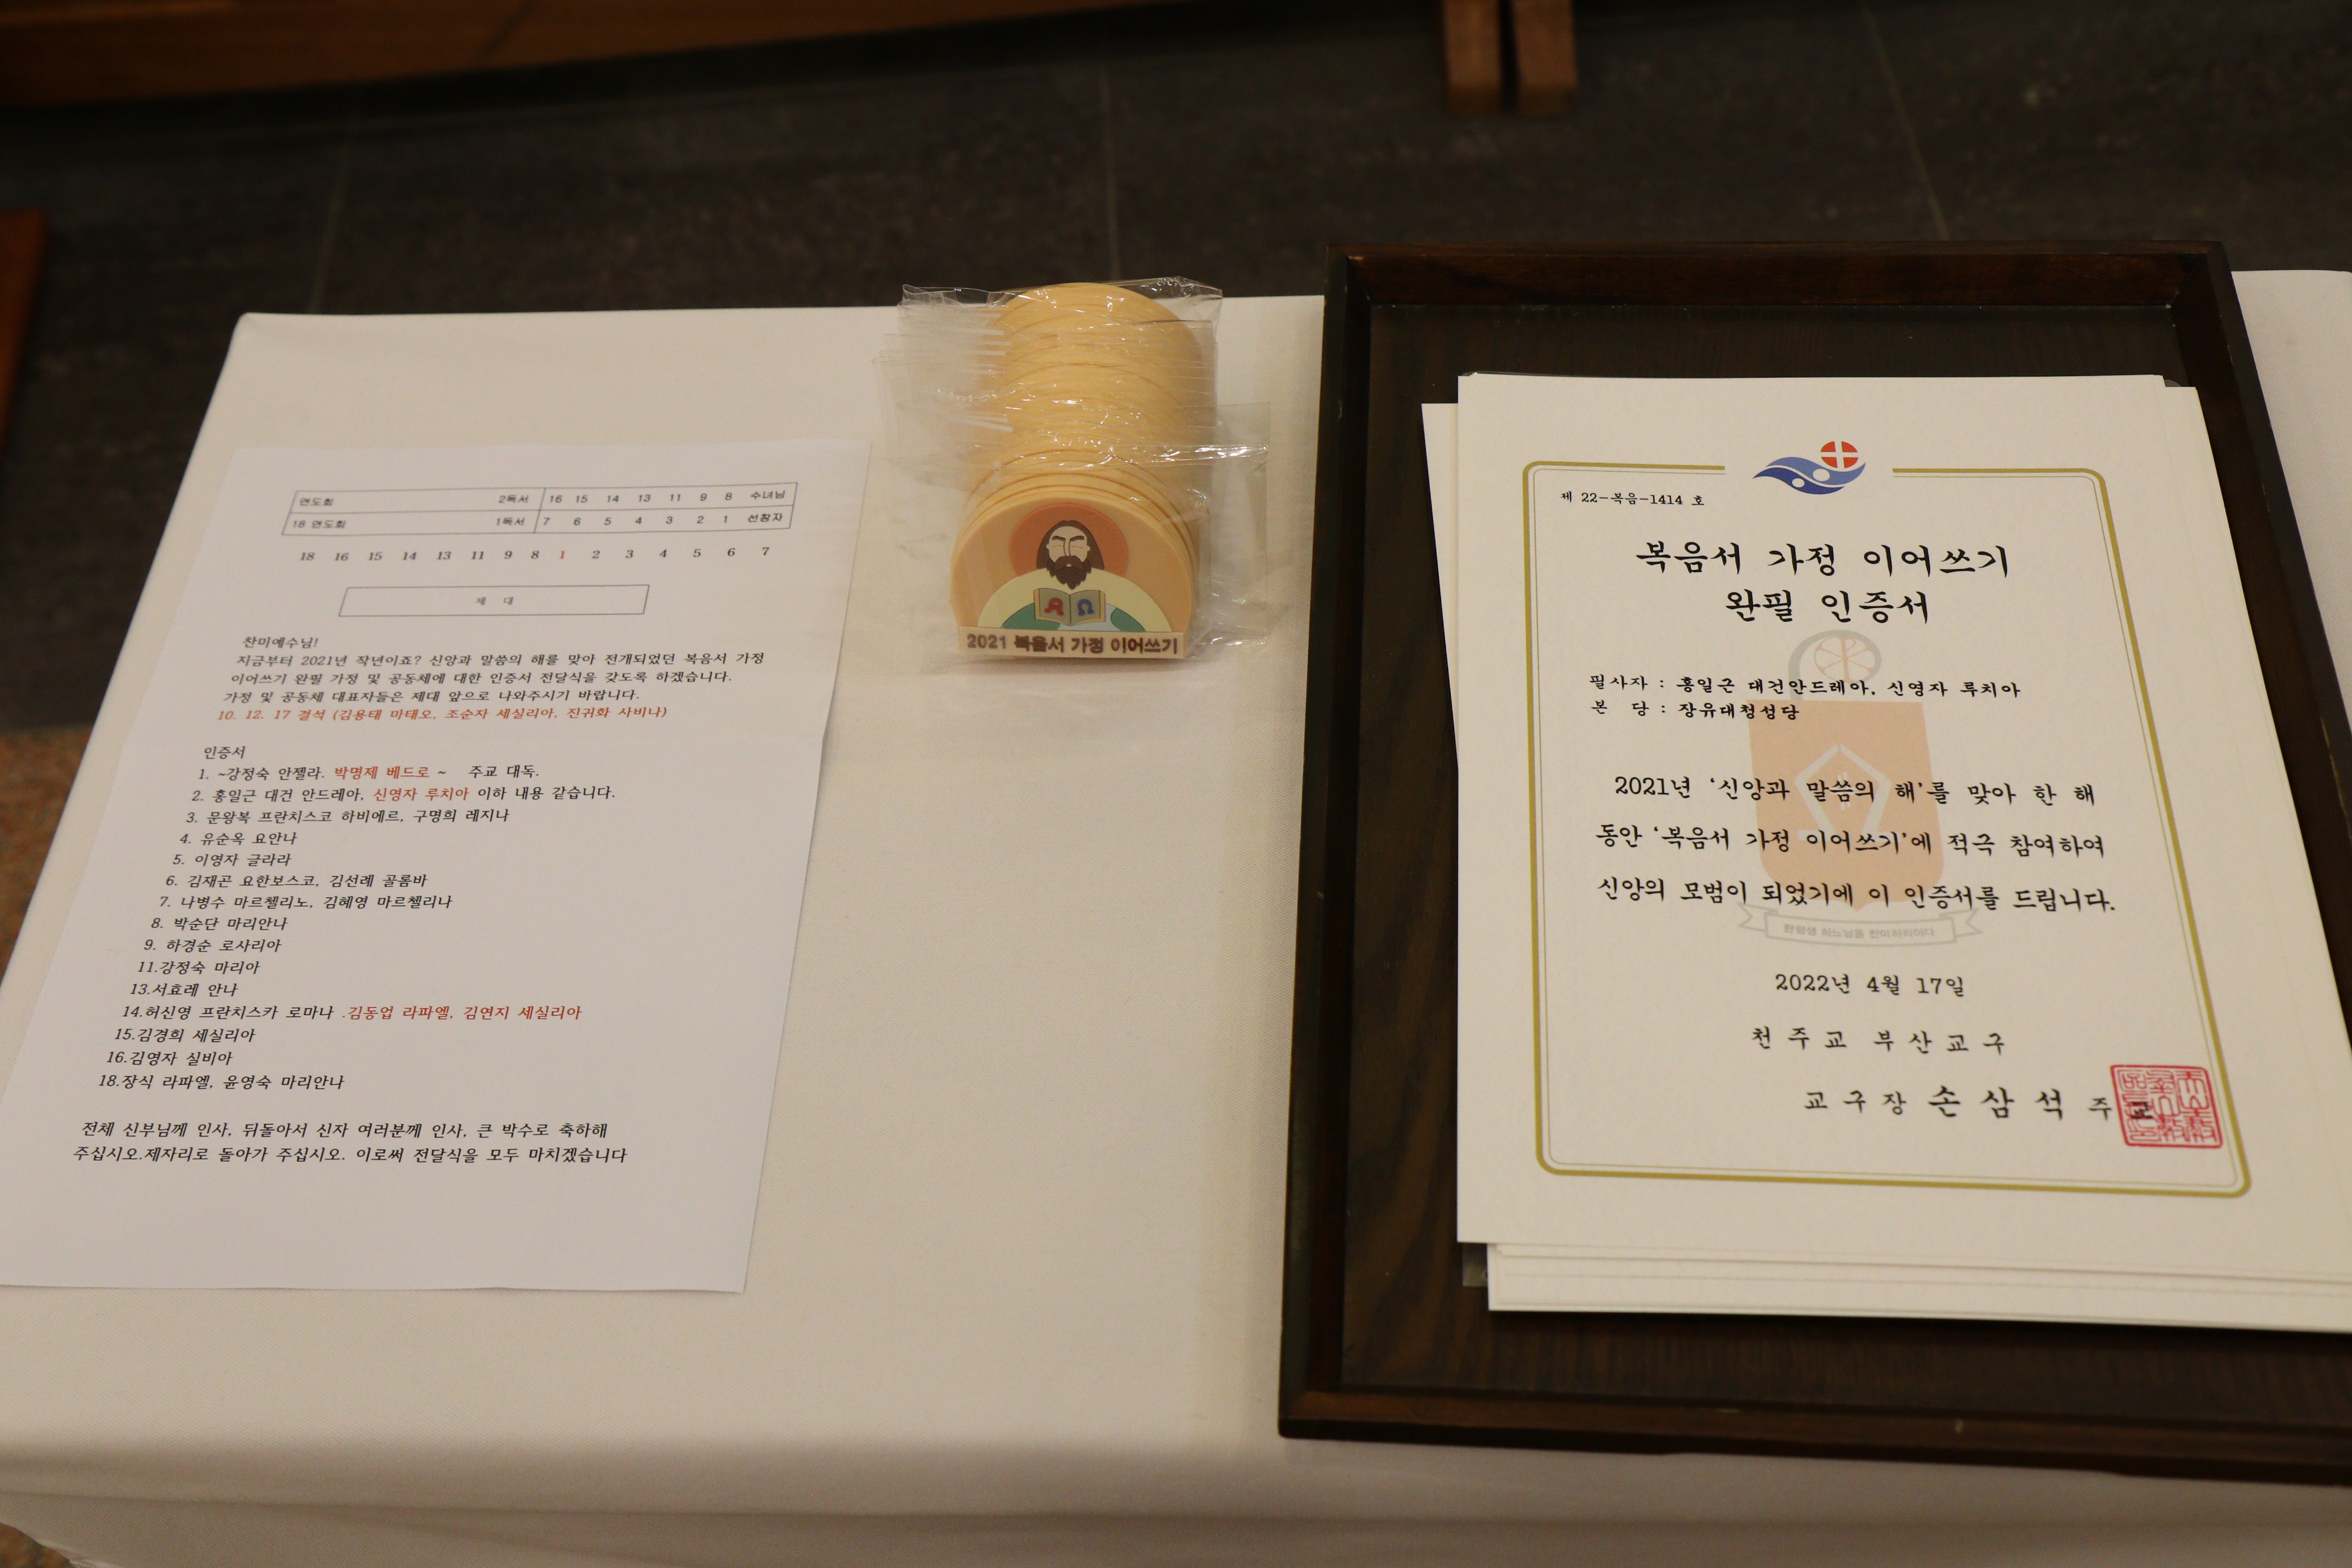 연도회 2독서 16 15 14 13 11 9 8 수녀님
18 연도회 1독서 7 6 5 4 3 2 1 선창자
18 16 15 14 13 11 9 8 1 2 3 4 5 6 7
제 대
찬미예수님!
지금부터 2021년 작년이죠? 신앙과 말씀의 해를 맞아 전개되었던 복음서 가정
이어쓰기 완필 가정 및 공동체에 대한 인증서 전달식을 갖도록 하겠습니다.
가정 및 공동체 대표자들은 제대 앞으로 나와주시기 바랍니다.
10. 12. 17 결석 (김용태 마태오, 조순자 세실리아, 진귀화 사비나)
인증서
1. ~강정숙 안젤라. 박명제 베드로 ~ 주교 대독.
2. 홍일근 대건 안드레아, 신영자 루치아 이하 내용 같습니다.
3. 문왕복 프란치스코 하비에르, 구명희 레지나
4. 유순옥 요안나
5. 이영자 글라라
6. 김재곤 요한보스코, 김선례 골롬바
7. 나병수 마르첼리노, 김혜영 마르첼리나
8. 박순단 마리안나
9. 하경순 로사리아
11.강정숙 마리아
13.서효레 안나
14.허신영 프란치스카 로마나 .김동업 라파엘, 김연지 세실리아
15.김경희 세실리아
16.김영자 실비아
18.장식 라파엘, 윤영숙 마리안나
전체 신부님께 인사, 뒤돌아서 신자 여러분께 인사, 큰 박수로 축하해
주십시오.제자리로 돌아가 주십시오. 이로써 전달식을 모두 마치겠습니다
Α Ω
2021 복음서 가정 이어쓰기
제 22-복음-1414 호
복음서 가정 이어쓰기
완필 인증서
필사자 : 홍일근 대건안드레아, 신영자 루치아
본 당 : 장유대청성당
2021년 '신앙과 말씀의 해'를 맞아 한 해
동안 '복음서 가정 이어쓰기'에 적극 참여하여
신앙의 모범이 되었기에 이 인증서를 드립니다.
한평생 하느님을 찬미하리이다
2022년 4월 17일
천주교 부산교구
교구장 손삼석 주교